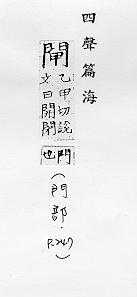 四聲篇海
閘
乙甲切說
文曰開閉
門也
(門部.
P.247)